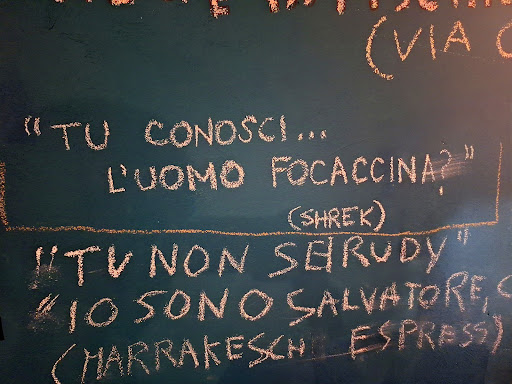 (VIA
"TU CONOSCI...
L'UOMO FOCACCINA?"
(SHREK)
"TU NON SEI RUDY"
"IO SONO SALVATORE,
(MARRAKESCH ESPRESS)